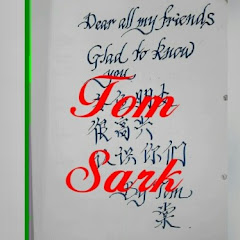 Dear all my friends
Glad to know
you
Tom
很高兴
认识你们
Sark
By Tom